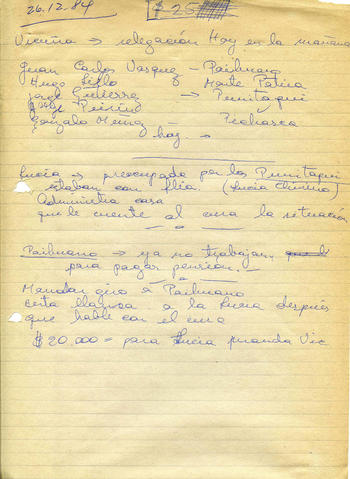 26.12.84 $ 25
Vicuña → relegación Hoy en la mañana
Juan Carlos Vasquez - Paihuano
Hugo - Monte Patria
Jorge Gutierrez → Punitaqui
Gonzalo Muñoz -
hoy. →
Lucia → preocupada por los Punitaqui
estaban con flia. (Lucia
Administra casa
que le cuente al cura la situación
Paihuano → ya no trabajan,
para pagar pension.-
Mandar giro a Paihuano
esta llamosa a la Lucia después
que hable con el cura
$ 20.000 = para Lucia manda Vic